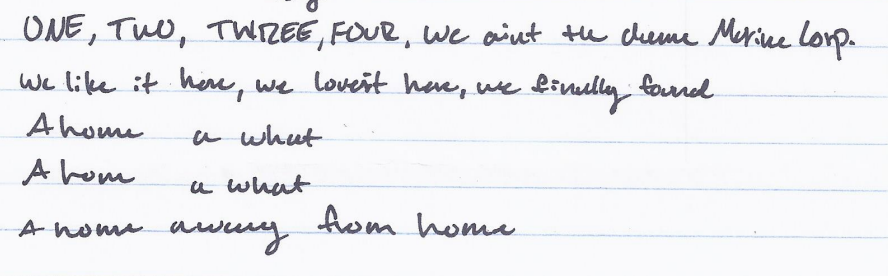 ONE, TWO, TWREE, FOUR, we aint the Marine Corp.
We like it here, we lovest here, we finally found
A home a what
A hom a what
A home away from home